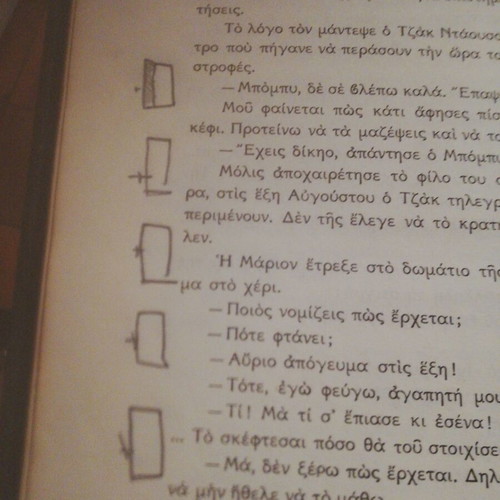 τήσεις.
Τὸ λόγο τὸν μάντεψε ὁ Τζὰκ Ντάουσο
τρο ποὺ πήγανε νὰ περάσουν τὴν ὥρα το
στροφές.
— Μπόμπυ, δὲ σὲ βλέπω καλά. Ἔπαψ
Μοῦ φαίνεται πὼς κάτι ἄφησες πίσ
κέφι. Προτείνω νὰ τὰ μαζέψεις καὶ νὰ το
— Ἔχεις δίκηο, ἀπάντησε ὁ Μπόμπι
Μόλις ἀποχαιρέτησε τὸ φίλο του ὁ
ρα, στὶς ἕξη Αὐγούστου ὁ Τζὰκ τηλεγρ
περιμένουν. Δὲν τῆς ἔλεγε νὰ τὸ κρατή
λεν.
Ἡ Μάριον ἔτρεξε στὸ δωμάτιο τῆς
μα στὸ χέρι.
— Ποιὸς νομίζεις πὼς ἔρχεται;
— Πότε φτάνει;
— Αὔριο ἀπόγευμα στὶς ἕξη!
— Τότε, ἐγὼ φεύγω, ἀγαπητή μου
— Τί! Μὰ τί σ' ἔπιασε κι ἐσένα!
... Τὸ σκέφτεσαι πόσο θὰ τοῦ στοιχίσε
— Μά, δὲν ξέρω πὼς ἔρχεται. Δηλ
νὰ μὴν ἤθελε νὰ τὸ μάθω